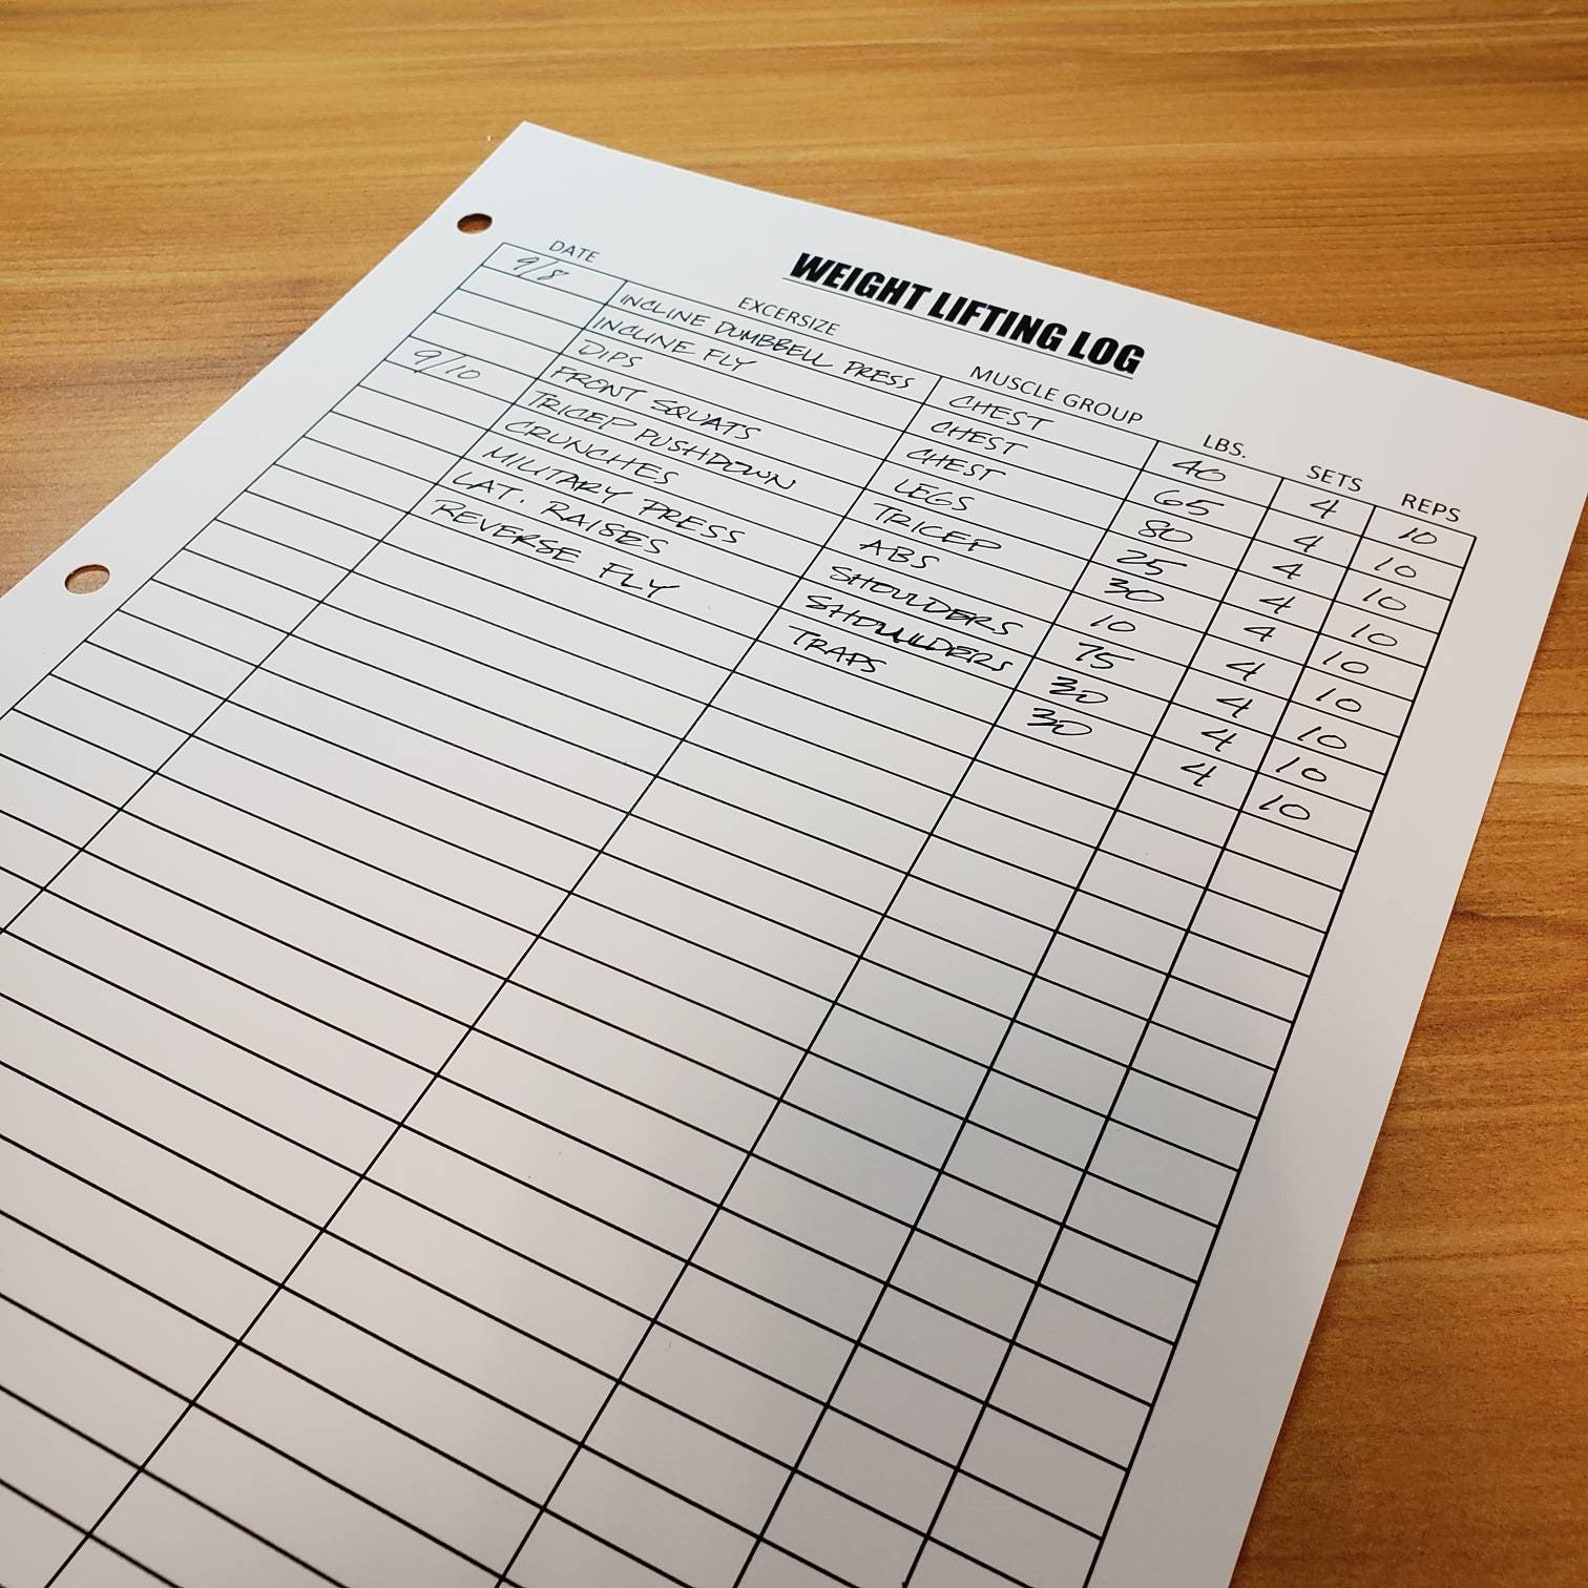 WEIGHT LIFTING LOG
DATE EXCERSIZE MUSCLE GROUP LBS. SETS REPS
9/8 INCLINE DUMBBELL PRESS CHEST 40 4 10
INCLINE FLY CHEST 65 4 10
DIPS CHEST 80 4 10
FRONT SQUATS LEGS 25 4 10
9/10 TRICEP PUSHDOWN TRICEP 30 4 10
CRUNCHES ABS 10 4 10
MILITARY PRESS SHOULDERS 75 4 10
LAT. RAISES SHOULDERS 30 4 10
REVERSE FLY TRAPS 30 4 10